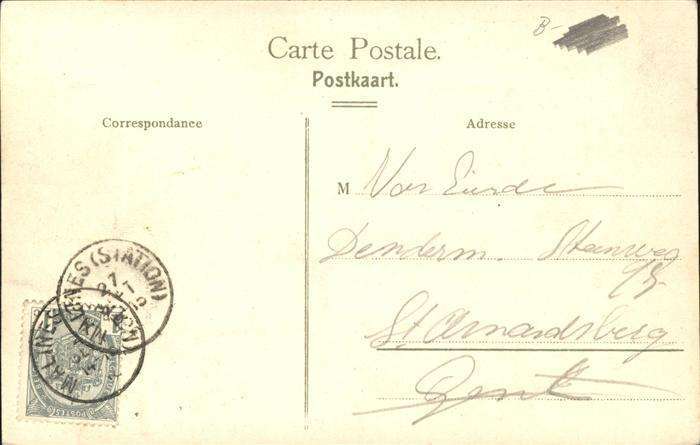 B-
Carte Postale.
Postkaart.
Correspondance
Adresse
M Van Eurde
Denderm. Steenweg
St Amandsberg
Gent
(STATION)
MALINES